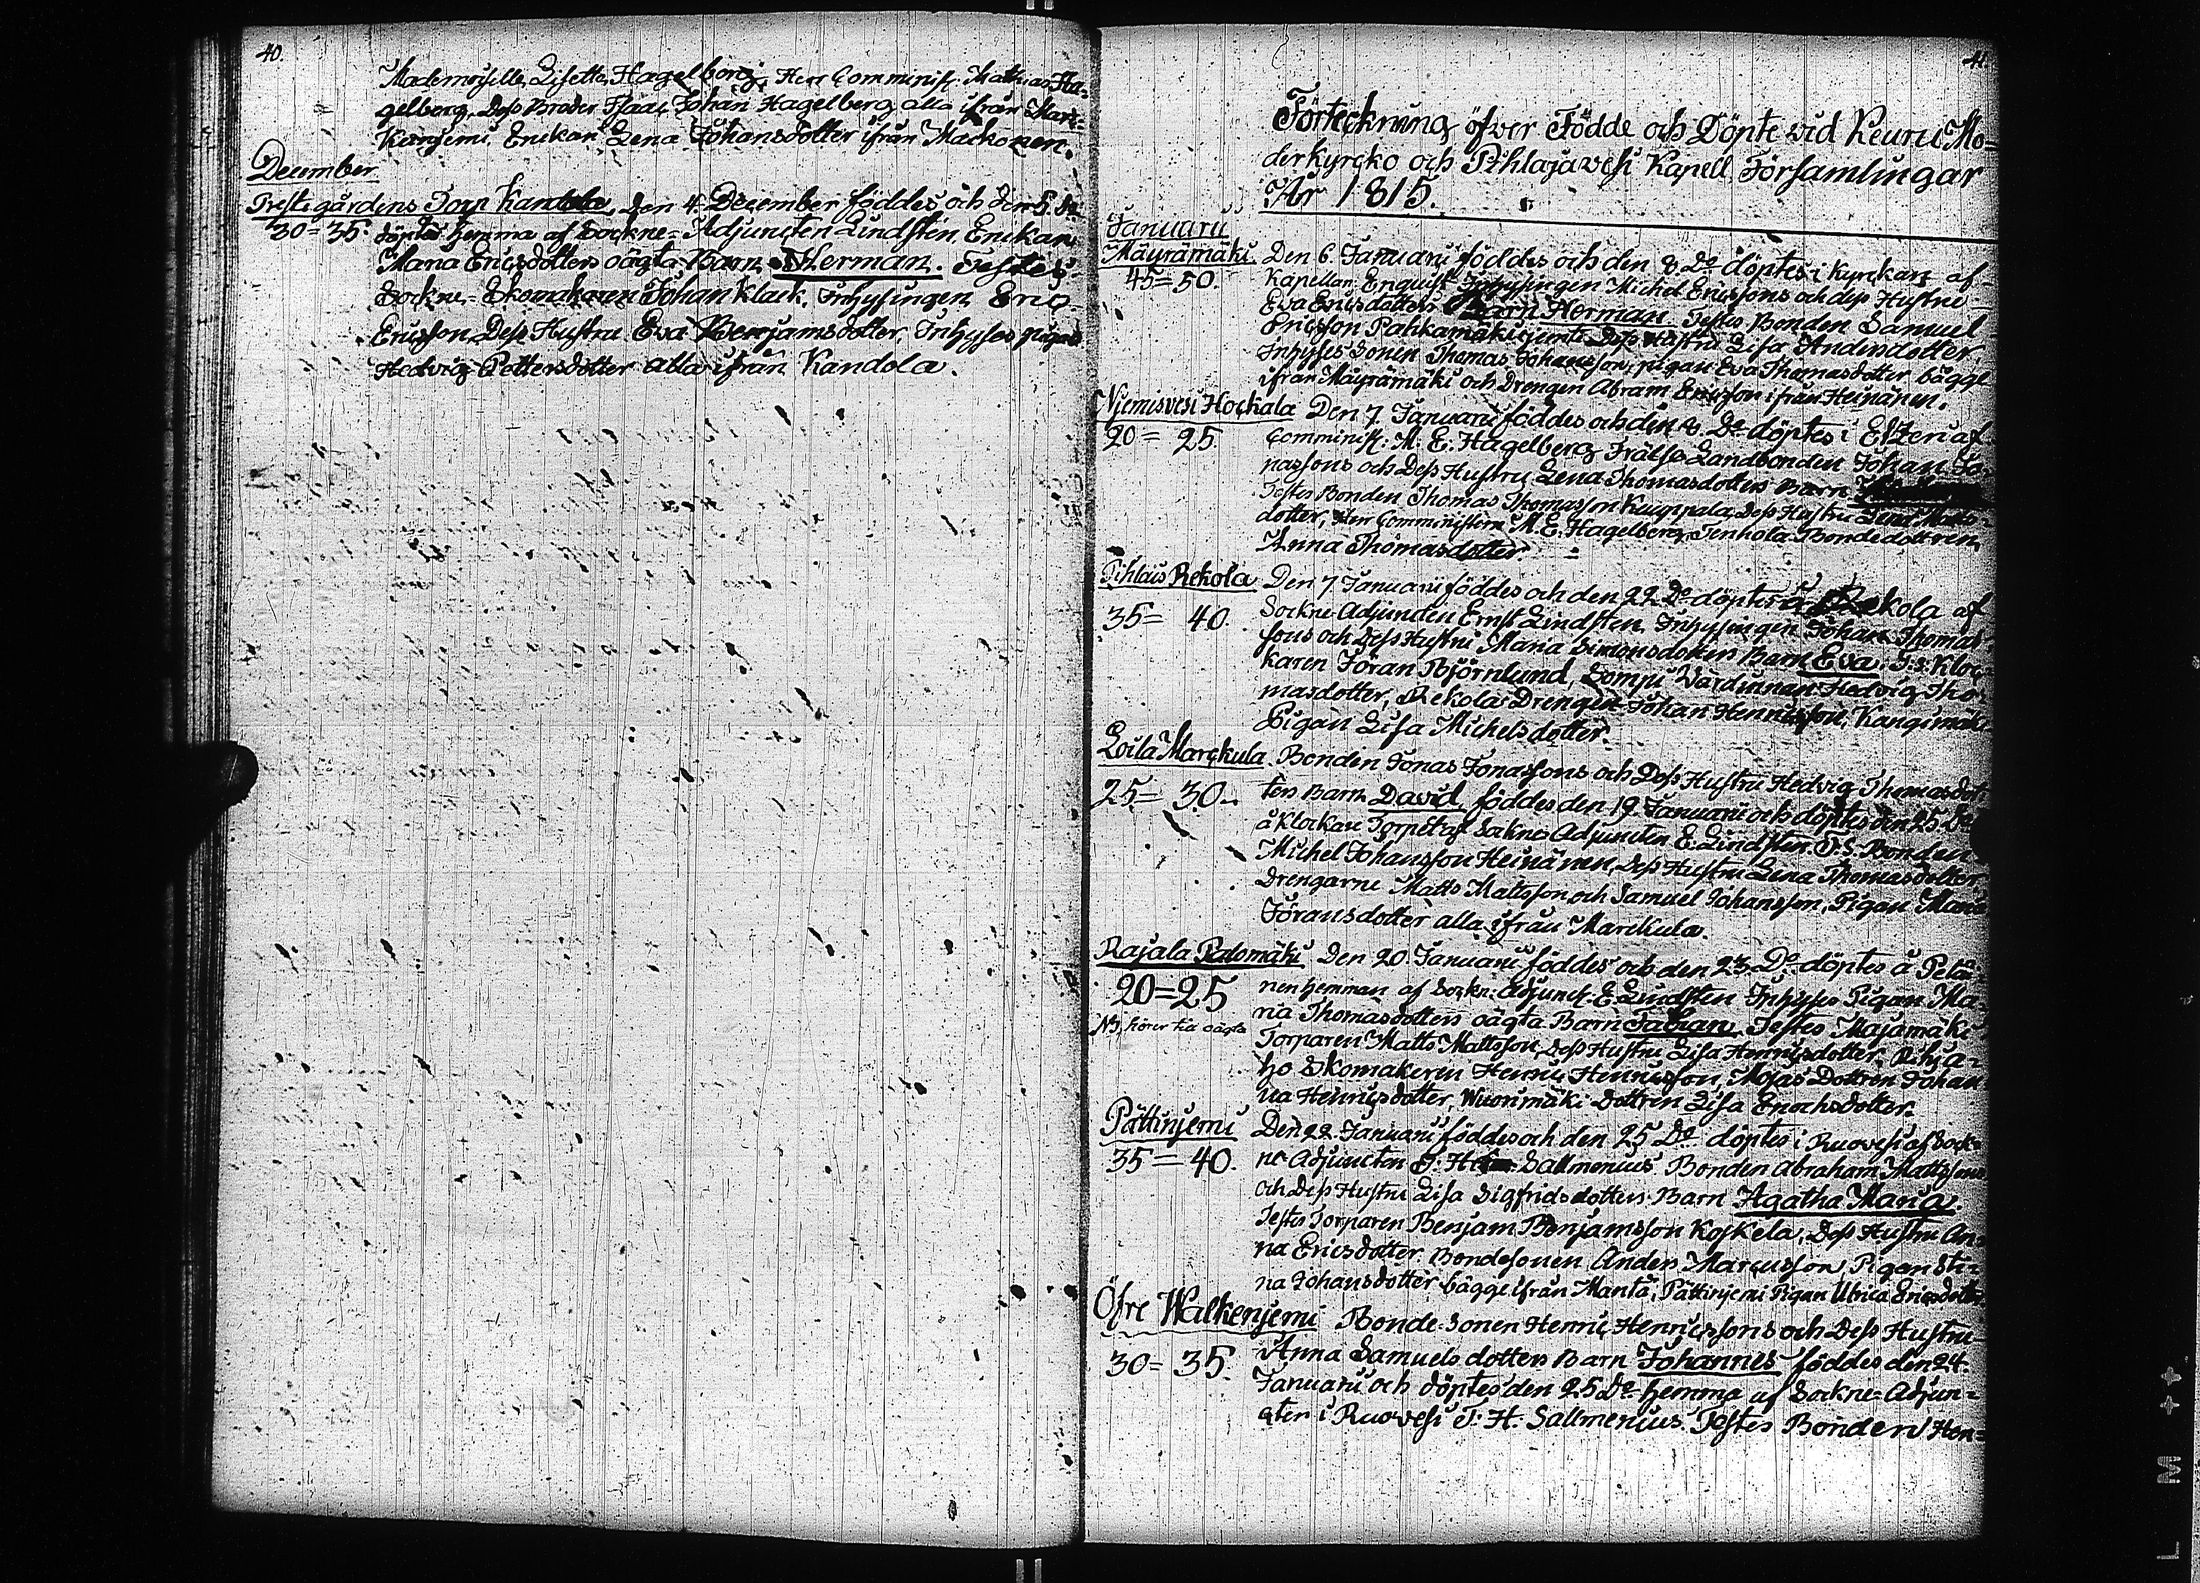 40.
Mademoiselle Lisette Hagelborg, Herr Comminist. Mathias Ha=
gelberg, Dess Broder Johan Hagelberg alla ifrån
Enckan Lena Johansdotter ifrån Mackonen.
December
Prestegårdens Torp Kandola, Den 4. December föddes och den 5. Do
30=35. döptes hemma af Sockne=Adjuncten Lindsten, Enckan
Maria Ericsdotters oägta Barn Herman. Testes
Sockne=Skomakaren Johan Klack, Inhysingen Eric
Ericsson, Dess Hustru Eva Benjamsdotter, Inhyses pigan
Hedvig Pettersdotter alla ifrån Kandola.
41
Förteckning öfver Födde och Döpte vid Keuru Mo=
derkyrcko och Pihlajavesi Kapell Församlingar
År 1815.
Januarii
Mäyrämäki. Den 6. Januarii föddes och den 8. Do döptes i Kyrckan af
45=50. Kapellan Enquist Inhysingen Michel Ericssons och dess Hustru
Eva Ericsdotters Barn Herman. Testes Bonden Samuel
Ericsson Pahkamäki, Dess Hustru Lisa Andersdotter,
Inhyses Sonen Thomas Johansson, pigan Eva Thomasdotter bägge
ifrån Mäyrämäki och Drengen Abram Ericsson ifrån Heinänen.
Njemisvesi Hockala Den 7. Januarii föddes och den 8. Do döptes i Etzeri af
20=25. Comminist: M. E. Hagelberg Frälse Landbonden Johan Jo=
nassons och Dess Hustru Lena Thomasdotters Barn
Testes Bonden Thomas Thomasson Kuippala, Dess Hustru Lena Matts=
dotter, Herr Comministern M. E. Hagelberg, Tenhola Bondedottren
Anna Thomasdotter.
Pihlais Rekola Den 7. Januarii föddes och den 22. Do döptes å Rekola af
35=40. Sockne Adjuncten Ernst Lindsten Inhysingen Johan Thomas=
sons och Dess Hustru Maria Simonsdotters Barn Eva. T.s. Kloc=
karen Jöran Björnlund, Sompu Värdinnan Hedvig Tho=
masdotter, Rekola Drengen Johan Henricsson, Kangismäki
Pigan Lisa Michelsdotter.
Loila Marckula. Bonden Jonas Jonassons och Dess Hustru Hedvig Thomasdot=
25=30. ters Barn David föddes den 19. Januarii och döptes den 25. Do
å Klockare Torpet af Sockne Adjuncten E. Lindsten. T.S. Bonden
Michel Johansson Heinänen, Dess Hustru Lena Thomasdotter
Drengarne Matts Mattsson och Samuel Johansson, Pigan Maria
Jöransdotter alla ifrån Marckula.
Rajala Palomäki Den 20. Januarii föddes och den 23. Do döptes å Pelä=
20=25 nen hemman af Sockn: Adjunct. E Lindsten Inhyses Pigan Ma=
NB, hörer till oägta ria Thomasdotters oägta Barn Fabian. Testes Majamäki
Torparen Matts Mattsson, Dess Hustru Lisa Henricsdotter, Riha=
ho Skomakeren Henric Henricsson, Mojas Dottren Johan=
na Henricsdotter, Wuorimäki Dottren Lisa Enochsdotter.
Pättinjemi Den 22. Januarii föddes och den 25 Do döptes i Ruovesi af Sock=
35=40. ne Adjuncten J. H. Sallmenius Bonden Abraham Mattssons
och Dess Hustru Lisa Sigfridsdotters Barn Agatha Maria.
Testes Torparen Benjam Benjamsson Koskela, Dess Hustru An=
na Ericsdotter. Bondesonen Anders Marcusson, Pigan Sti=
na Johansdotter, bägge ifrån Mäntä, Pättinjemi Pigan Ulrica Ericsdotter.
Öfre Walkenjemi Bonde=sonen Henric Henricssons och Dess Hustru
30=35. Anna Samuelsdotters Barn Johannes föddes den 24.
Januarii och döptes den 25 Do hemma af Sockne=Adjun=
cten i Ruovesi J: H: Sallmenius. Testes Bonden Hen=